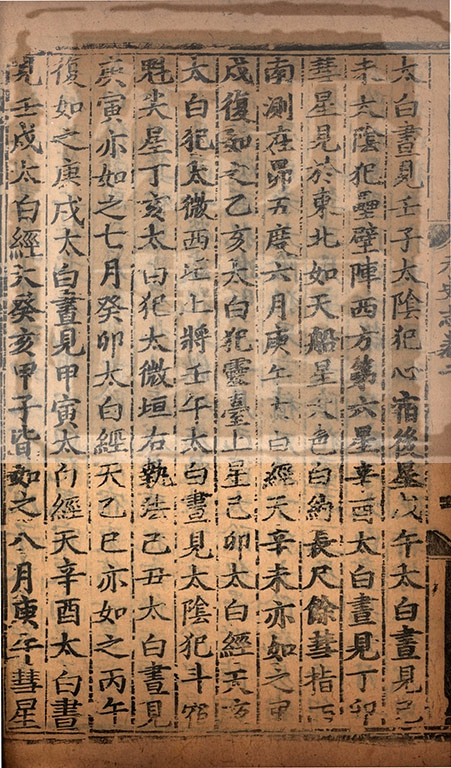 太白晝見壬子太陰犯心宿後星戊午太白晝見己
未太陰犯壘壁陣西方第六星辛酉太白晝見丁卯
彗星見於東北如天船星大色白約長尺餘彗指西
南測在昴五度六月庚午太白經天辛未亦如之甲
戌復如之乙亥太白犯靈臺上星己卯太白經天夜
太白犯太微西垣上將壬午太白晝見太陰犯斗宿
魁尖星丁亥太白犯太微垣右執法己丑太白晝見
庚寅亦如之七月癸卯太白經天乙巳亦如之丙午
復如之庚戌太白晝見甲寅太白經天辛酉太白晝
見壬戌太白經天癸亥甲子皆如之八月庚午彗星